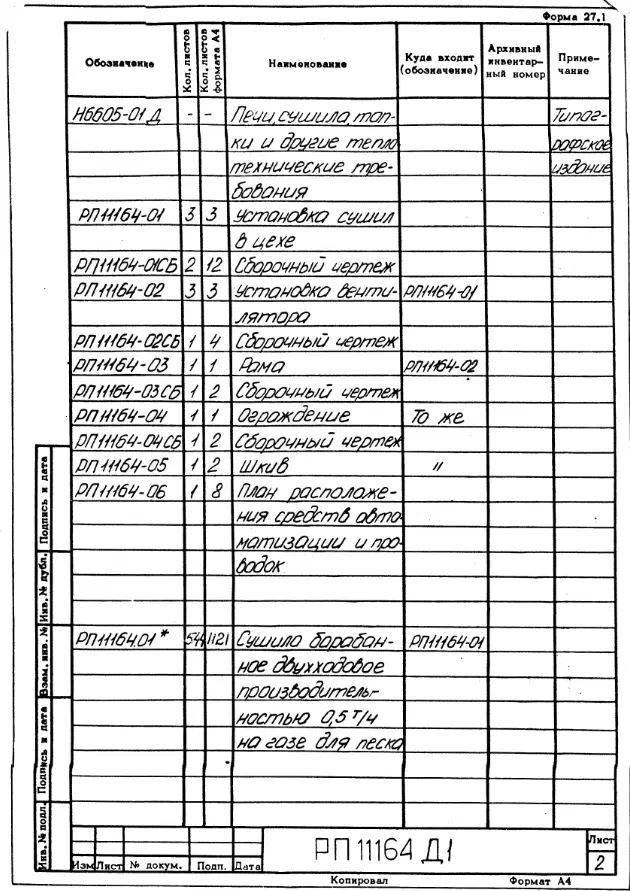 Форма 27.1
Обозначение Кол. листов Кол. листов формата А4 Наименование Куда входит (обозначение) Архивный инвентарный номер Примечание
Н6605-01 Д - - Печи, сушила, топ- Типог-
ки и другие тепло рафское
технические тре- издание
бования
РП11164-01 3 3 Установка сушил
в цехе
РП11164-01СБ 2 12 Сборочный чертеж
РП11164-02 3 3 Установка венти- РП11164-01
лятора
РП11164-02СБ 1 4 Сборочный чертеж
РП11164-03 1 1 Рама РП11164-02
РП11164-03СБ 1 2 Сборочный чертеж
РП11164-04 1 1 Ограждение То же
РП11164-04СБ 1 2 Сборочный чертеж
РП11164-05 1 2 Шкив "
РП11164-06 1 8 План расположе-
ния средств авто
матизации и про-
водок
РП11164.01* 544 1121 Сушило барабан- РП11164-01
ное двухходовое
производитель-
ностью 0,5 т/ч
на газе для песка
Инв. № подл. Подпись и дата Взам. инв. № Инв. № дубл. Подпись и дата
Изм Лист № докум. Подп. Дата
РП 11164 Д1
Лист
2
Копировал Формат А4